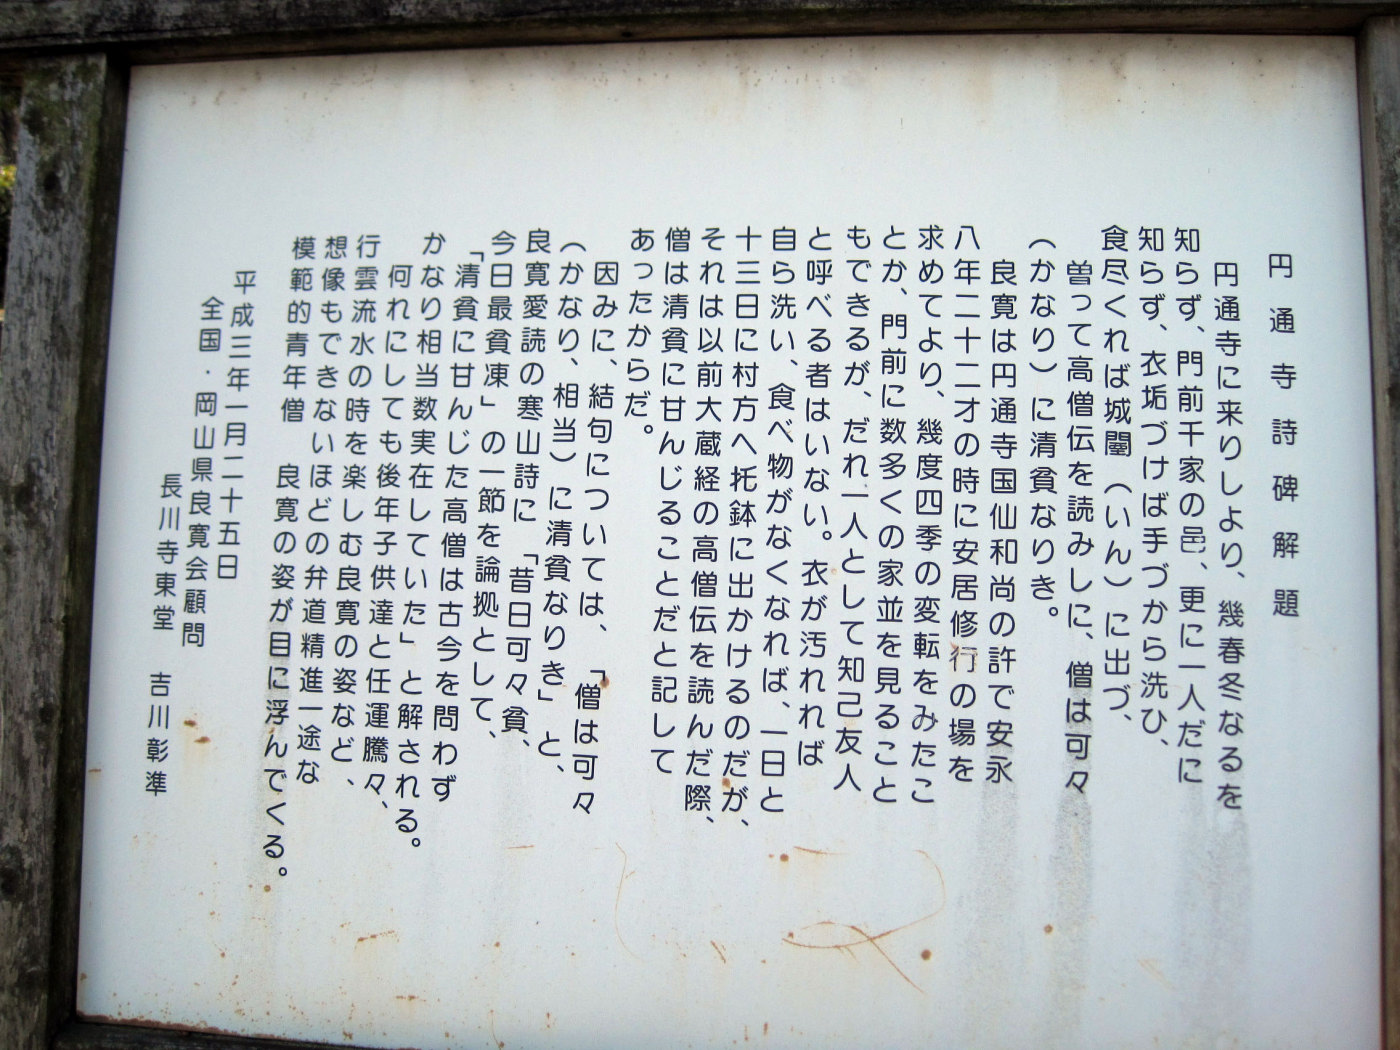 円通寺詩碑解題
円通寺に来りしより、幾春冬なるを
知らず、門前千家の邑、更に一人だに
知らず、衣垢づけば手づから洗ひ、
食尽くれば城闉（いん）に出づ、
曽って高僧伝を読みしに、僧は可々
（かなり）に清貧なりき。
良寛は円通寺国仙和尚の許で安永
八年二十二才の時に安居修行の場を
求めてより、幾度四季の変転をみたこ
とか、門前に数多くの家並を見ること
もできるが、だれ一人として知己友人
と呼べる者はいない。衣が汚れれば
自ら洗い、食べ物がなくなれば、一日と
十三日に村方へ托鉢に出かけるのだが、
それは以前大蔵経の高僧伝を読んだ際、
僧は清貧に甘んじることだと記して
あったからだ。
因みに、結句については、「僧は可々
（かなり、相当）に清貧なりき」と、
良寛愛読の寒山詩に「昔日可々貧、
今日最貧凍」の一節を論拠として、
「清貧に甘んじた高僧は古今を問わず
かなり相当数実在していた」と解される。
何れにしても後年子供達と任運騰々、
行雲流水の時を楽しむ良寛の姿など、
想像もできないほどの弁道精進一途な
模範的青年僧　良寛の姿が目に浮んでくる。
平成三年一月二十五日
全国・岡山県良寛会顧問
長川寺東堂　吉川彰準